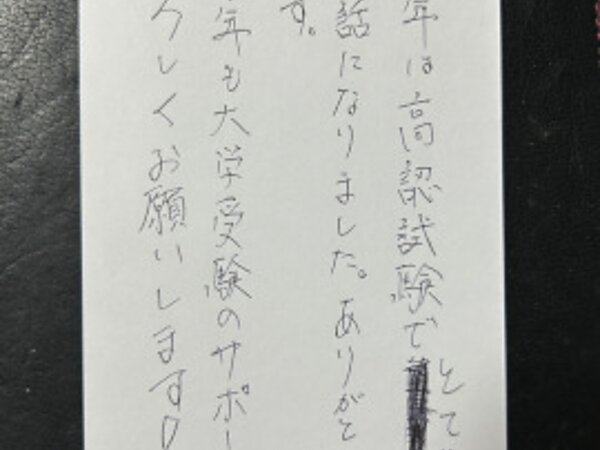 年は高認試験でとても
話になりました。ありがと
す。
年も大学受験のサポー
ろしくお願いします